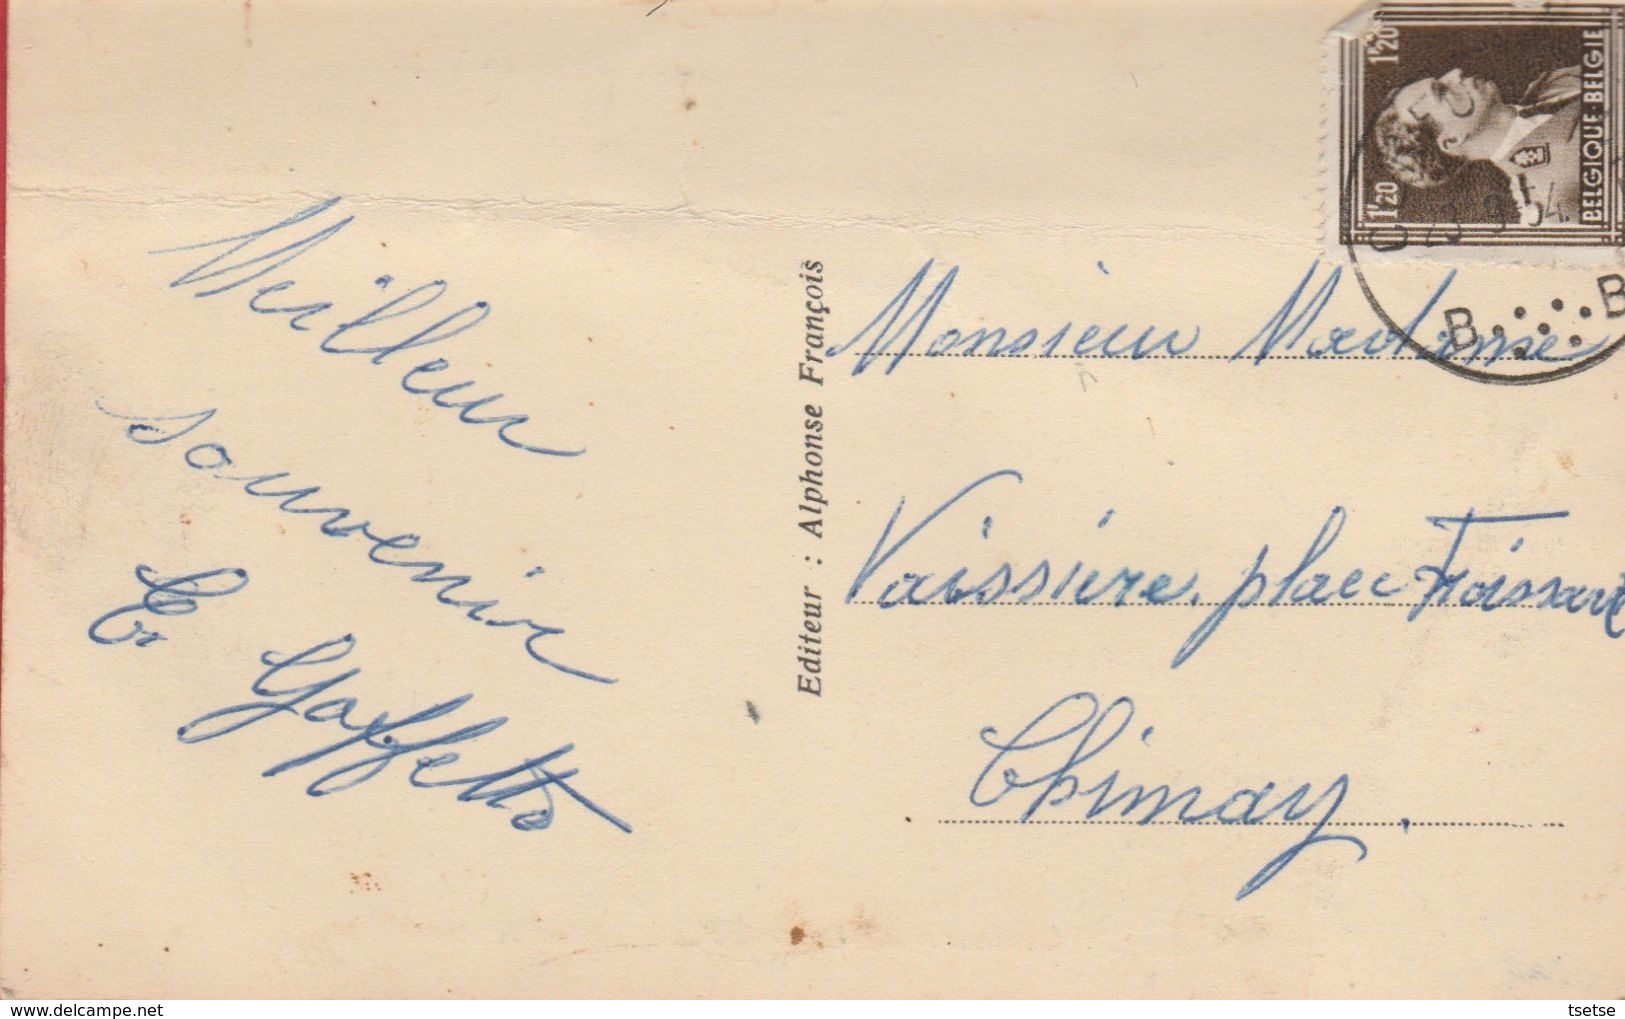 Meilleur
souvenir
E Goffette
Editeur : Alphonse François
1F20
1F20
BELGIQUE-BELGIE
23 9 54
B B
Monsieur Madame
Vaissière. place Froissart
Chimay.
delcampe.net
tsetse